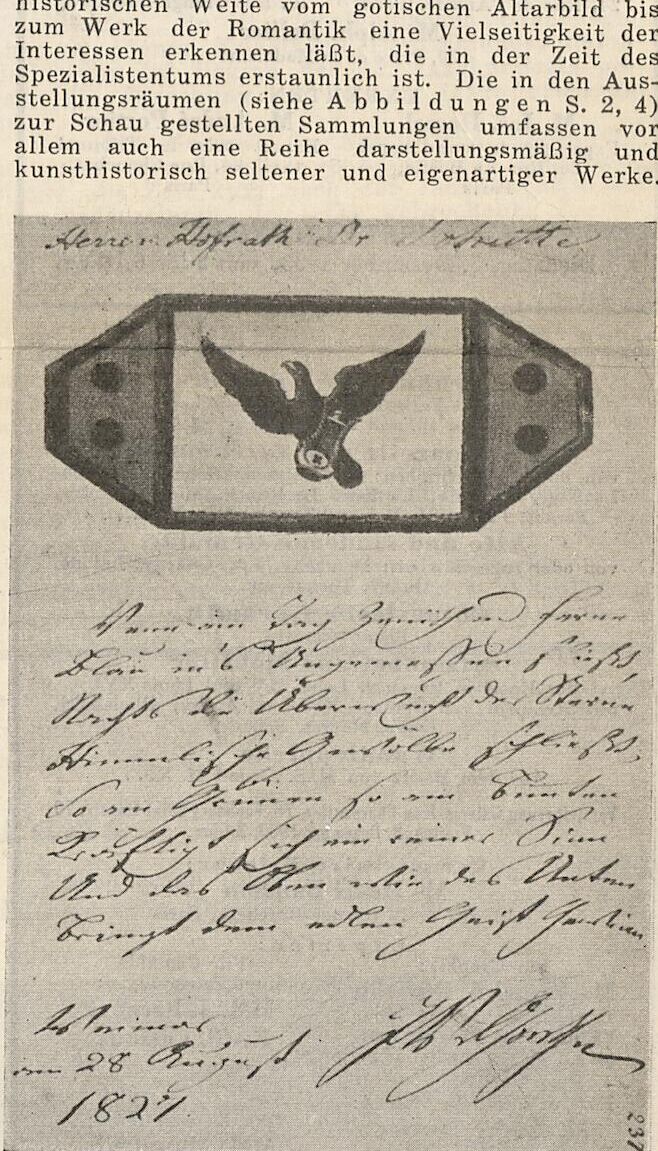 historischen Weite vom gotischen Altarbild bis
zum Werk der Romantik eine Vielseitigkeit der
Interessen erkennen läßt, die in der Zeit des
Spezialistentums erstaunlich ist. Die in den Aus-
stellungsräumen (siehe Abbildungen S. 2, 4)
zur Schau gestellten Sammlungen umfassen vor
allem auch eine Reihe darstellungsmäßig und
kunsthistorisch seltener und eigenartiger Werke.
Herren Hofrath Dr
Wenn am Tag Zenith und Ferne
Blau in's Ungemessen fließt,
Nachts die Überwucht der Sterne
Himmlische Gewölbe schließt,
So am Grünen so am Bunten
Kräftigt sich ein reiner Sinn
Und das Oben wie das Unten
Bringt dem edlen Geist Gewinn.
Weimar
am 28 August
1827.
JWvGoethe
237